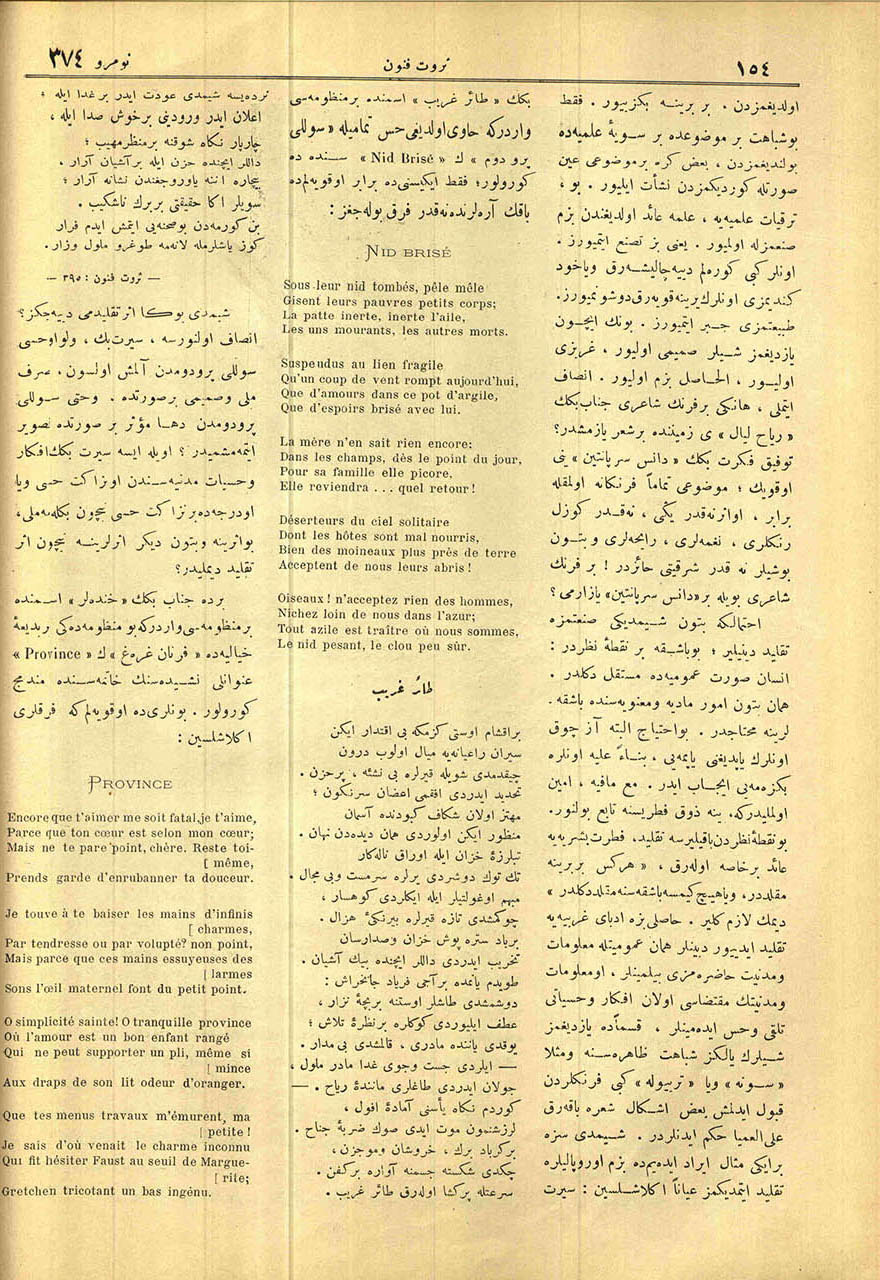 ١٥٤
ثروت فنون
نومرو ٣٧٤
اولديغمزدن . بر برينه بكزييور . فقط
بوشباهت بر موضوعده بر سويهٔ علميه‌ده
بولنديغمزدن ، بعض كره بر موضوعى عين
صورتله كورديكمزدن نشأت ايليور . بو ،
ترقيات علميه‌يه ، علمه عائد اولديغندن بزم
صنعمزله اولميور . يعنى بز تصنع ايتميورز .
اونلر كبى كوره‌لم دييه چاليشه‌رق وياخود
كنديمزى اونلرك يرينه قويه‌رق دوشونميورز.
طبيعتمزى جبر ايتميورز . بونك ايچون
يازديغمز شيلر صميمى اوليور ، غريزى
اوليور ، الحاصل بزم اوليور . انصاف
ايتملى ، هانكى بر فرنك شاعرى جناب بكك
« رياح ليال » ى زميننده بر شعر يازمشدر؟
توفيق فكرت بكك « دانس سرپانتين » نى
اوقويك ؛ موضوعى تماماً فرنكانه اولمقله
برابر ، اواثر نه‌قدر يكى ، نه‌قدر كوزل
رنكلرى ، نغمه‌لرى ، رايحه‌لرى وبتون
بوشيلر نه قدر شرقيتى حائزدر ! بر فرنك
شاعرى بويله بر «دانس سرپانتين» يازارمى؟
احتمالكه بتون شيمديكى صنعتمزه
تقليد دينيلير ؛ بوباشقه بر نقطهٔ نظردر :
انسان صورت عموميه‌ده مستقل دكلدر .
همان بتون امور ماديه ومعنويه‌سنده باشقه‌
لرينه محتاجدر . بواحتياج البته آز چوق
اونلرك ياپديغنى ياپمه‌يى ، بناءً عليه اونلره
بكزه‌مه‌يى ايجاب ايدر . مع مافيه ، امين
اولمليدركه، ينه ذوق فطريسنه تابع بولنور.
بو نقطهٔ نظردن باقيليرسه تقليد، فطرت بشريه‌يه
عائد بر خاصه اوله‌رق ، « هركس بربرينه
مقلددر، وياهيچ كيمسه باشقه‌سنه مقلد دكلدر »
ديمك لازم كلير . حاصلى بزه ادباى غربيه‌يه
تقليد ايدييور دينلر همان عموميتله معلومات
ومدنيت حاضره‌مزى بيلمينلر ، اومعلومات
ومدنيتك مقتضاسى اولان افكار وحسياتى
تلقى وحس ايده‌مينلر ، قسماًده يازديغمز
شيلرك يالكز شباهت ظاهره‌سنه ومثلا
«سونه» ويا «تريوله» كبى فرنكلردن
قبول ايدلمش بعض اشكال شعره باقه‌رق
على العميا حكم ايدنلردر . شيمدى سزه
برايكى مثال ايراد ايده‌يم‌ده بزم اوروپاليلره
تقليد ايتمديكمز عياناً اكلاشلسين : سيرت
بكك « طائر غريب » اسمنده بر منظومه‌سى
واردركه حاوى اولديغى حس تماميله « سوللى
پرودوم » ك « Nid Brisé » سنده ده
كورولور؛ فقط ايكيسنى‌ده برابر اوقويه‌لم‌ده
باقك آره‌لرنده نه‌قدر فرق بوله‌جغز :
NID BRISÉ
Sous leur nid tombés, pêle mêle
Gisent leurs pauvres petits corps;
La patte inerte, inerte l'aile,
Les uns mourants, les autres morts.
Suspendus au lien fragile
Qu'un coup de vent rompt aujourd'hui,
Que d'amours dans ce pot d'argile,
Que d'espoirs brisé avec lui.
La mère n'en sait rien encore;
Dans les champs, dès le point du jour,
Pour sa famille elle picore,
Elle reviendra ... quel retour !
Déserteurs du ciel solitaire
Dont les hôtes sont mal nourris,
Bien des moineaux plus près de terre
Acceptent de nous leurs abris !
Oiseaux ! n'acceptez rien des hommes,
Nichez loin de nous dans l'azur;
Tout azile est traître où nous sommes,
Le nid pesant, le clou peu sûr.
طائر غريب
براقشام اوستى كزمكه بى اقتدار ايكن
سيران راعيانه‌يه ميال اولوب درون
چيقدمدى شويله قيرلره بى نشئه ، پرحزن .
تحديد ايدردى افقمى اعضان سرنكون ؛
مهتز اولان شكاف كبودنده آسمان
منظور ايكن اولوردى همان ديده‌دن نهان .
تيلرزهٔ خزان ايله اوراق ناله‌كار
تك توك دوشردى يرلره سرمست وبى مجال .
مبهم اوغولتيلر ايله ايكلردى كوهسار ،
چوكمشدى تازه قيرلره بيرنكئ هزال .
برباد ستره پوش خزان وصدارسان
تخريب ايدردى داللر ايچنده بيك آشيان .
طويدم يانمده برآجى فرياد جانخراش :
دوشمشدى طاشلر اوستنه بر بچهٔ نزار ،
عطف ايليوردى كوكلره بر نظرهٔ تلاش ؛
يوقدى ياننده مادرى ، قالمشدى بى مدار .
— ايلردى جست وجوى غدا مادر ملول ،
جولان ايدردى طاغلرى مانندهٔ رياح . —
كوردم نكاه يأسنى آمادهٔ افول ،
لرزشنمون موت ايدى صوك ضربهٔ جناح .
بركرباد برك ، خروشان وموجزن ،
چكدى شكسته جسمنه آواره بركفن .
سرعتله پركشا اوله‌رق طائر غريب .
نرده‌يسه شيمدى عودت ايدر بر غدا ايله ؛
اعلان ايدر ورودينى برخوش صدا ايله ،
چارپار نكاه شوقنه بر منظر مهيب ؛
داللر ايچنده حزن ايله بر آشيان آرار ،
بيچاره اننه ياوروجغندن نشانه آرار ؛
سويلر اكا حقيقتى بربرك ناشكيب .
بن كورمه‌دن بوصحنه‌يى ايتمش ايدم فرار
كوز ياشلرمله لانه‌مه طوغرو ملول وزار .
— ثروت فنون : ٣٩٥ —
شيمدى بوكا اثر تقليدمى دييه‌جكز؟
انصاف اولنورسه ، سيرت بك ، ولو اوحسى
سوللى پرودومدن آلمش اولسون، صرف
ملى وصميمى بر صورتده . وحتى سوللى
پرودومدن دها مؤثر بر صورتده تصوير
ايتمه‌مشميدر؟ اويله ايسه سيرت بكك افكار
وحسيات مدنيه‌سندن اونزاكت حسى ويا
اودرجه‌ده بر نزاكت حسى نيچون بكلمه‌ملى،
بواثرينه وبتون ديكر اثرلرينه نيچون اثر
تقليد ديمليدر؟
برده جناب بكك «خنده‌لر» اسمنده
بر منظومه‌سى واردركه بو منظومه‌ده‌كى ربديعهٔ
خياليه‌ده « فرنان غره‌غ » ك « Province »
عنوانلى نشيده‌سنك خاتمه‌سنده مندمج
كورولور . بونلرى‌ده اوقويه‌لم كه فرقلرى
اكلاشلسين :
PROVINCE
Encore que t'aimer me soit fatal, je t'aime,
Parce que ton cœur est selon mon cœur;
Mais ne te pare point, chère. Reste toi-
[ même,
Prends garde d'enrubanner ta douceur.
Je touve à te baiser les mains d'infinis
[ charmes,
Par tendresse ou par volupté? non point,
Mais parce que ces mains essuyeuses des
[ larmes
Sons l'œil maternel font du petit point.
O simplicité sainte! O tranquille province
Où l'amour est un bon enfant rangé
Qui ne peut supporter un pli, même si
[ mince
Aux draps de son lit odeur d'oranger.
Que tes menus travaux m'émurent, ma
[ petite !
Je sais d'où venait le charme inconnu
Qui fit hésiter Faust au seuil de Margue-
[ rite;
Gretchen tricotant un bas ingénu.